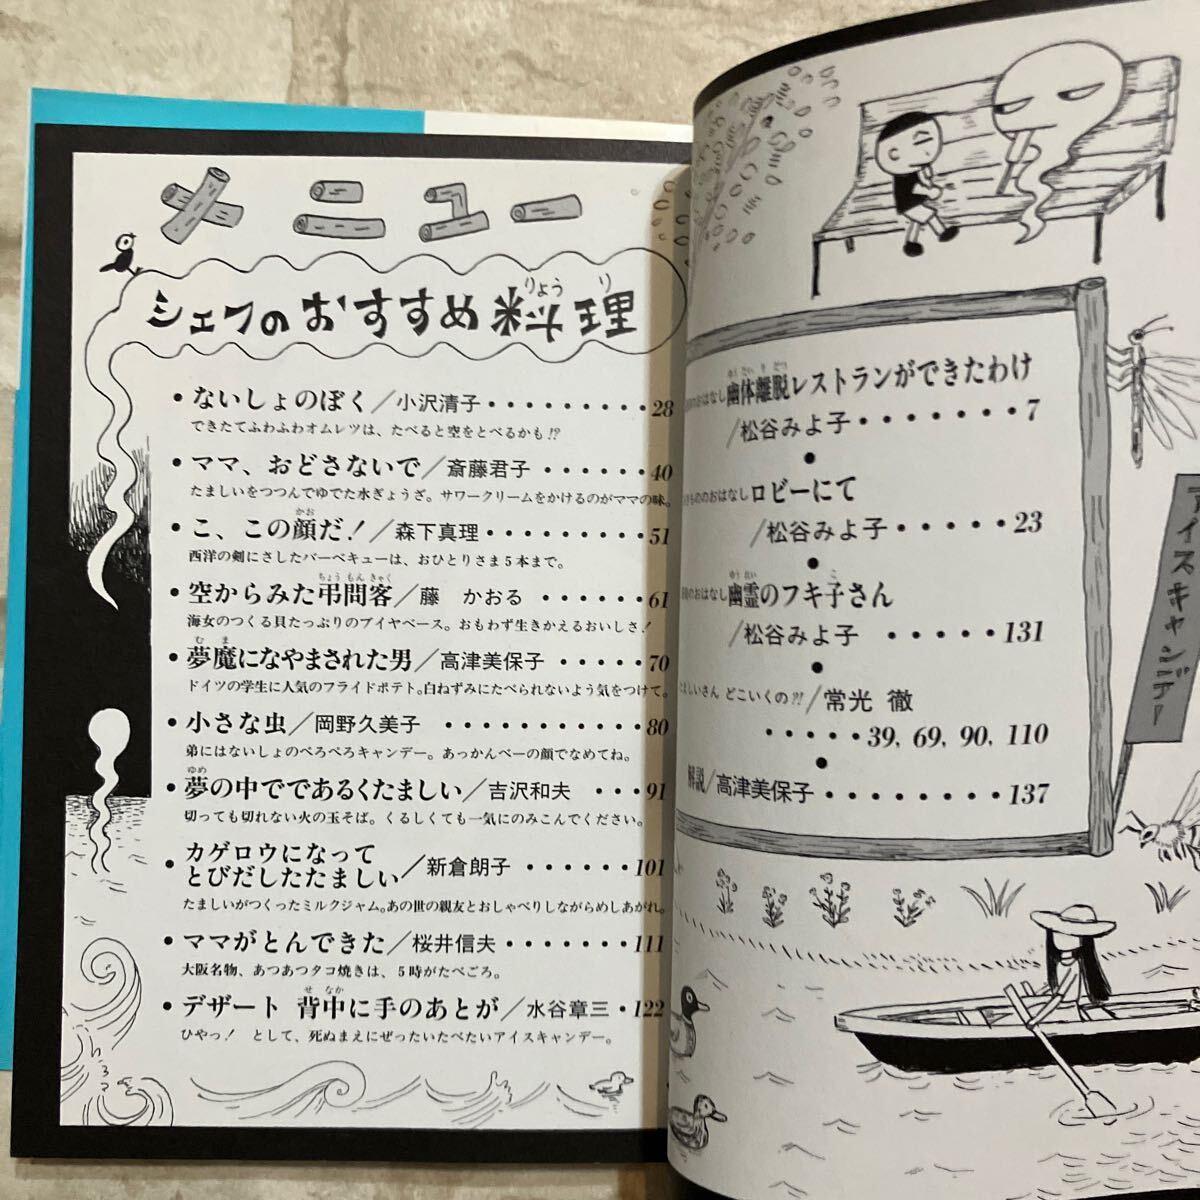 メニュー
シェフのおすすめ料理
りょうり
・ないしょのぼく／小沢清子・・・・・・・・・28
できたてふわふわオムレツは、たべると空をとべるかも!?
・ママ、おどさないで／斎藤君子・・・・・・40
たましいをつつんでゆでた水ぎょうざ。サワークリームをかけるのがママの味。
・こ、この顔だ！／森下真理・・・・・・・・・51
かお
西洋の剣にさしたバーベキューは、おひとりさま5本まで。
・空からみた弔問客／藤　かおる・・・・・・61
ちょうもんきゃく
海女のつくる貝たっぷりのブイヤベース。おもわず生きかえるおいしさ！
・夢魔になやまされた男／高津美保子・・・・・70
むま
ドイツの学生に人気のフライドポテト。白ねずみにたべられないよう気をつけて。
・小さな虫／岡野久美子・・・・・・・・・・・80
弟にはないしょのぺろぺろキャンデー。あっかんべーの顔でなめてね。
・夢の中でであるくたましい／吉沢和夫・・・91
ゆめ
切っても切れない火の玉そば。くるしくても一気にのみこんでください。
・カゲロウになって
とびだしたたましい／新倉朗子・・・・・・101
たましいがつくったミルクジャム。あの世の親友とおしゃべりしながらめしあがれ。
・ママがとんできた／桜井信夫・・・・・・・111
大阪名物、あつあつタコ焼きは、5時がたべごろ。
・デザート 背中に手のあとが／水谷章三・122
せなか
ひやっ！　として、死ぬまえにぜったいたべたいアイスキャンデー。
のおはなし幽体離脱レストランができたわけ
ゆうたいりだつ
／松谷みよ子・・・・・・・7
●
もののおはなしロビーにて
／松谷みよ子・・・・・23
●
のおはなし幽霊のフキ子さん
ゆうれい　こ
／松谷みよ子・・・・・131
●
ましいさん どこいくの?!／常光 徹
・・・・・39, 69, 90, 110
●
解説／高津美保子・・・・・・・・137
アイスキャンデー